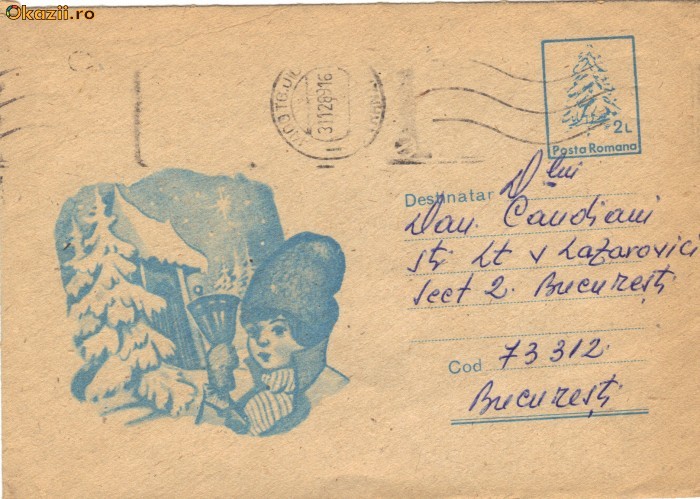 Okazii.ro
31128916
2L
Posta Romana
Destinatar Dlui
Dan Candiani
str Lt v Lazarovici
sect 2. București
Cod 73312
București